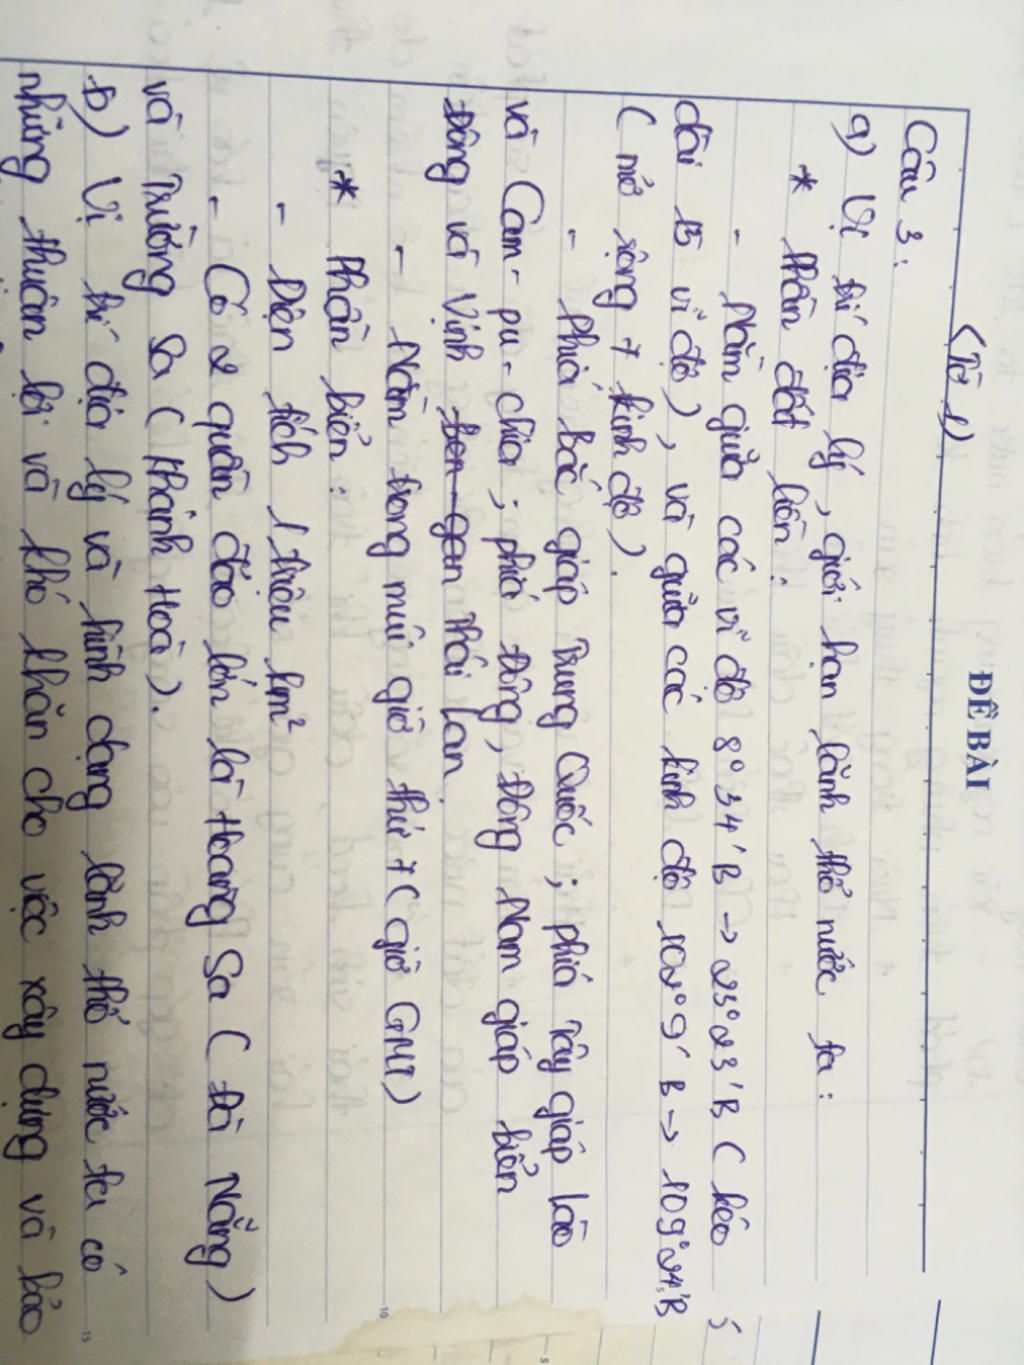 ĐỀ BÀI
(Tờ 1)
Câu 3:
a) Vị trí địa lý, giới hạn lãnh thổ nước ta:
* Phần đất liền:
- Nằm giữa các vĩ độ 8°34'B → 23°23'B (kéo
dài 15 vĩ độ), và giữa các kinh độ 102°9'B → 109°24'B
(mở rộng 7 kinh độ).
- Phía bắc giáp Trung Quốc; phía Tây giáp Lào
và Cam-pu-chia; phía Đông, Đông Nam giáp biển
Đông và Vịnh Ben-gan Thái Lan.
- Nằm trong múi giờ thứ 7 (giờ GMT)
* Phần biển:
- Diện tích 1 triệu km²
- Có 2 quần đảo lớn là Hoàng Sa (Đà Nẵng)
và Trường Sa (Khánh Hoà).
b) Vị trí địa lý và hình dạng lãnh thổ nước ta có
những thuận lợi và khó khăn cho việc xây dựng và bảo
5
10
15